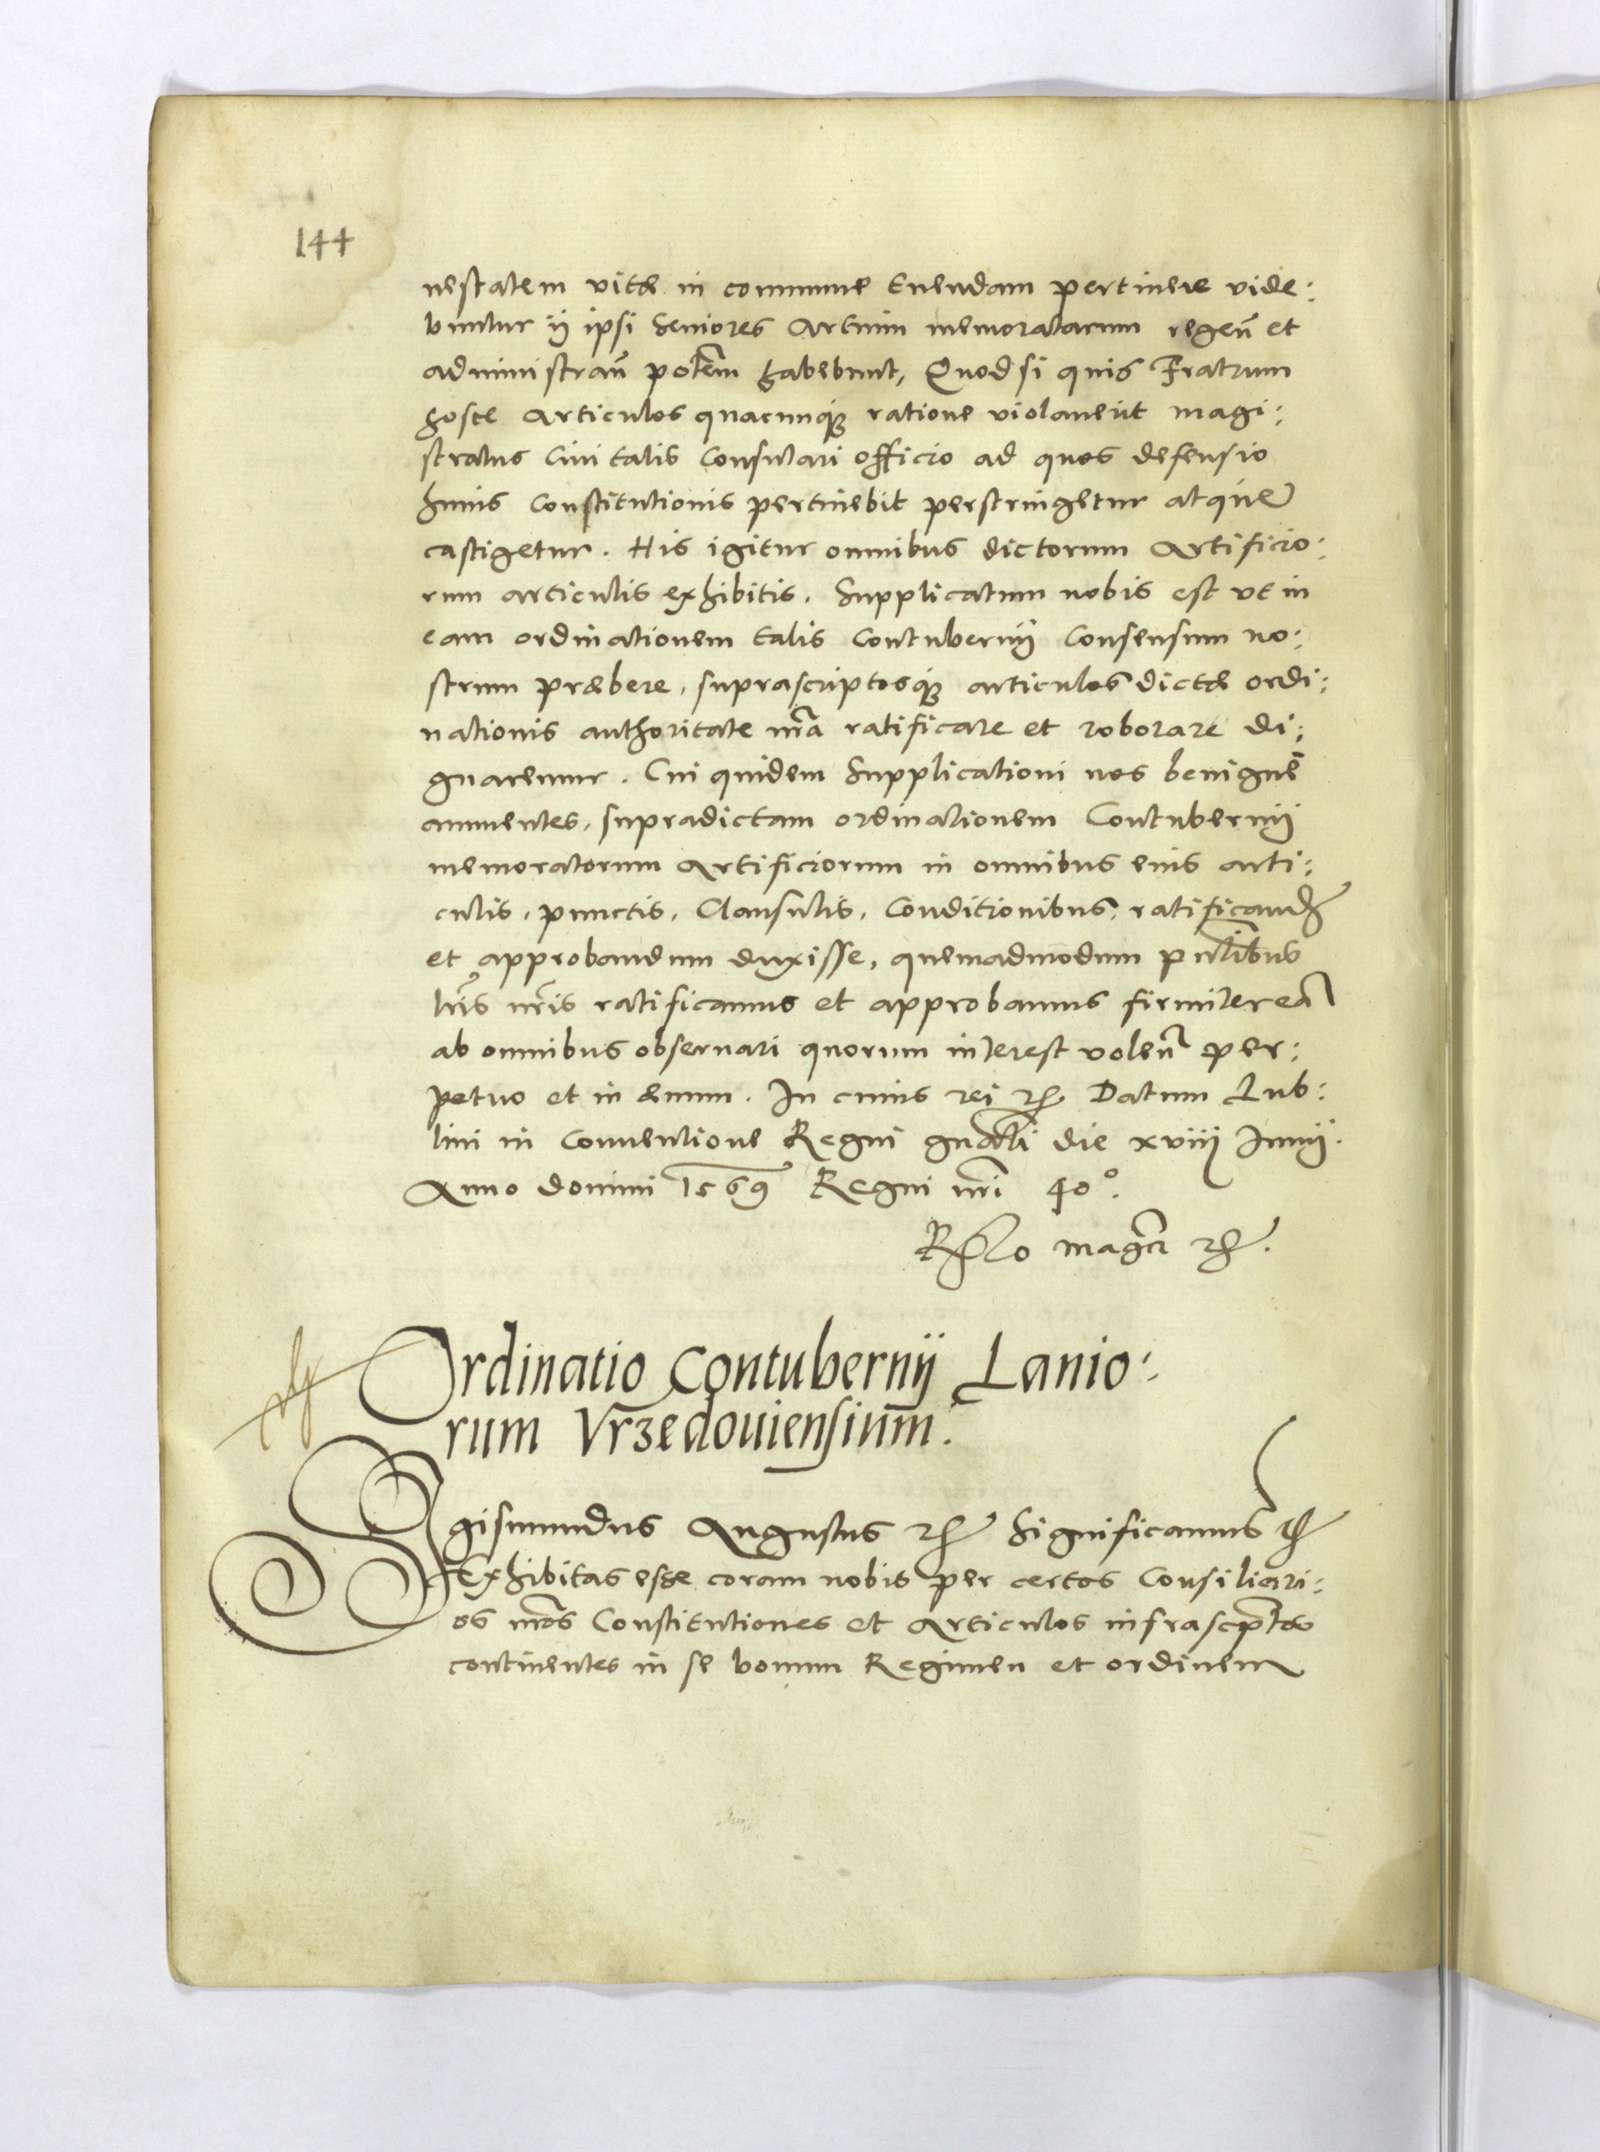 144
nestatem vitæ in commune tuendam pertinere vide:
buntur ij ipsi Seniores Artium memoratarum regen̄ et
administran̄ potem̄ habebunt, Quod si quis Fratrum
hosce Articulos quacunq; ratione violauerit magi:
stratus Ciuitatis Consulari officio ad quos defensio
huius Constitutionis pertinebit perstringetur atque
castigetur. His igitur omnibus dictorum Artificio:
rum articulis exhibitis. Supplicatum nobis est vt in
eam ordinationem talis Contubernij Consensum no:
strum præbere, suprascriptosq; articulos dictæ ordi:
nationis authoritate nr̄a ratificare et roborare di:
gnaremur. Cui quidem Supplicationi nos benignè
annuentes, supradictam ordinationem Contubernij
memoratorum Artificiorum in omnibus eius arti:
culis, punctis, Clausulis, Conditionibus, ratificand
et approbandum duxisse, quemadmodum pn̄tibus
lr̄is nr̄is ratificamus et approbamus firmiter eā
ab omnibus obseruari quorum interest volen̄ per:
petuo et in æuum. In cuius rei &c. Datum Lub:
lini in Conuentione Regni gn̄ali die xviiij Junij.
Anno domini 1569 Regni nr̄i 40º.
Rl̄o mag̃ci &c.
Ordinatio Contubernij Lanio:
rum Vrzedouiensium.
Sigismundus Augustus &c Significamus &c
Exhibitas esse coram nobis per certos Consiliari:
os nr̄os Constitutiones et Articulos infrascptos
continentes in se bonum Regimen et ordinem